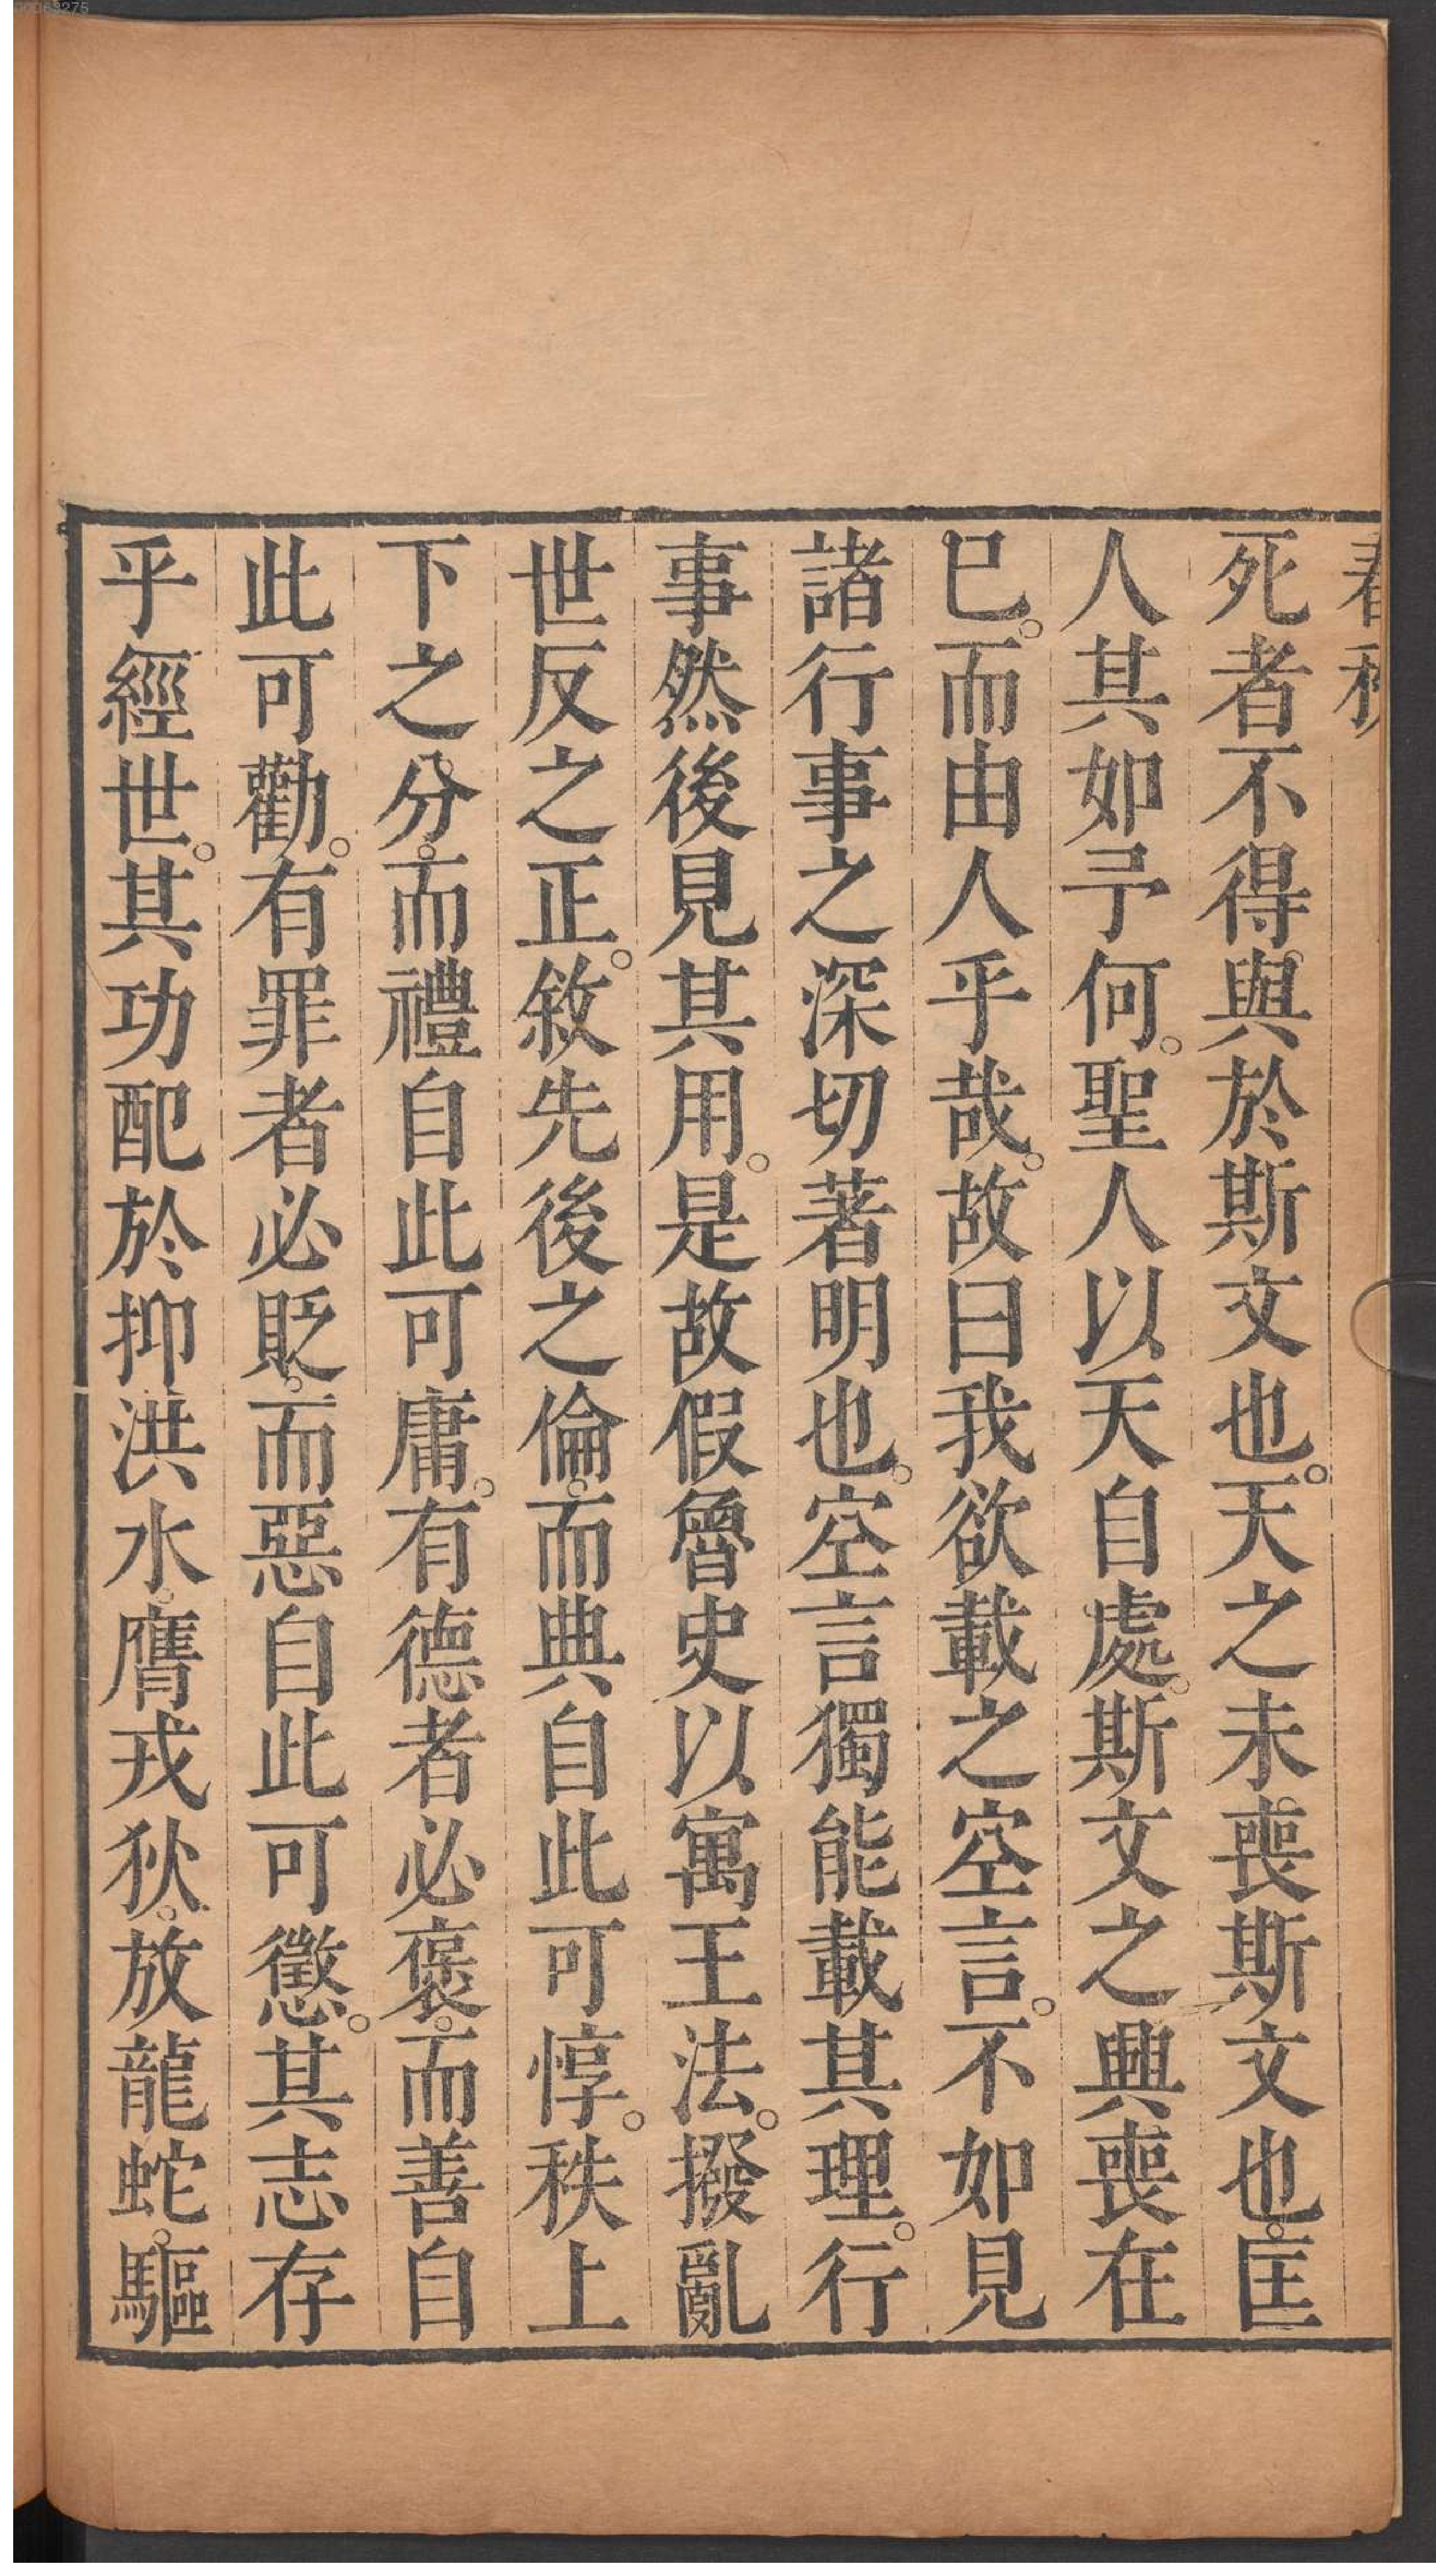 00063275
春秋
死者不得與於斯文也。天之未喪斯文也。匡
人其如予何。聖人以天自處。斯文之興喪在
已。而由人乎哉。故曰我欲載之空言。不如見
諸行事之深切著明也。空言獨能載其理。行
事然後見其用。是故假魯史以寓王法。撥亂
世反之正。敘先後之倫。而典自此可惇。秩上
下之分。而禮自此可庸。有德者必褒。而善自
此可勸。有罪者必貶。而惡自此可懲。其志存
乎經世。其功配於抑洪水。膺戎狄。放龍蛇。驅